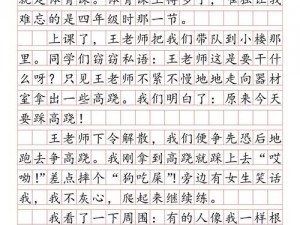 就是体育课。体育课上得多了，唯独让我
难忘的是四年级时那一节。
上课了，王老师把我们带队到小楼那
里。同学们窃窃私语：王老师这是要干什
么呀？只见王老师不紧不慢地地走向器材
室拿出一些高跷。我们明白了：原来今天
要踩高跷！
王老师下令解散，我们便争先恐后地
跑去争高跷。我刚拿到高跷就踩上去“哎
呦！”差点摔个“狗吃屎！”旁边有女生笑话
我，我不灰心，爬起来继续练。
我看了一下周围：有的人像我一样根